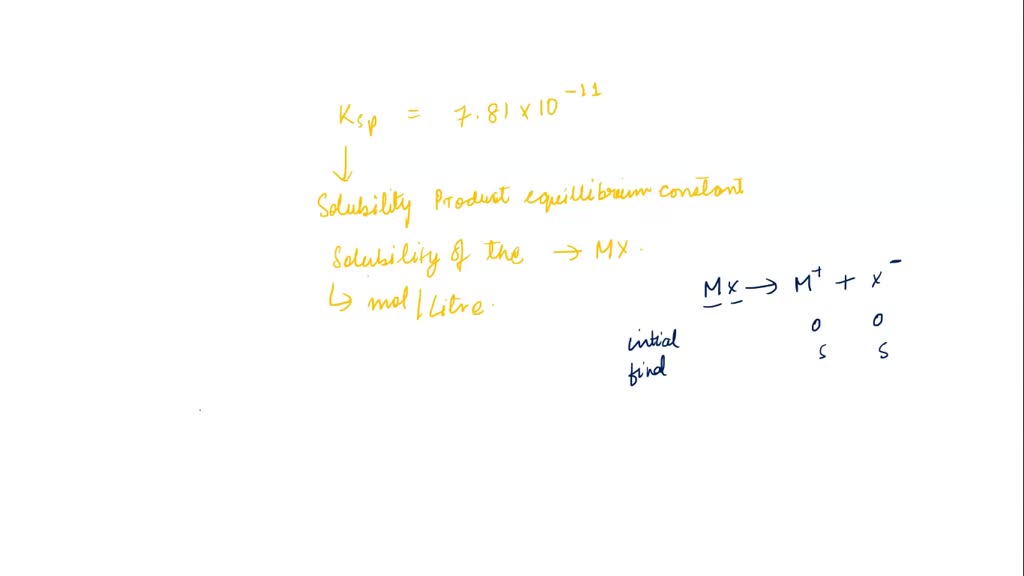 Ksp = 7.81 × 10⁻¹¹
↓
Solubility Product equillibrium constant
Solubility of the → MX.
↳ mol / Litre.
MX → M⁺ + X⁻
intial 0 0
find s s